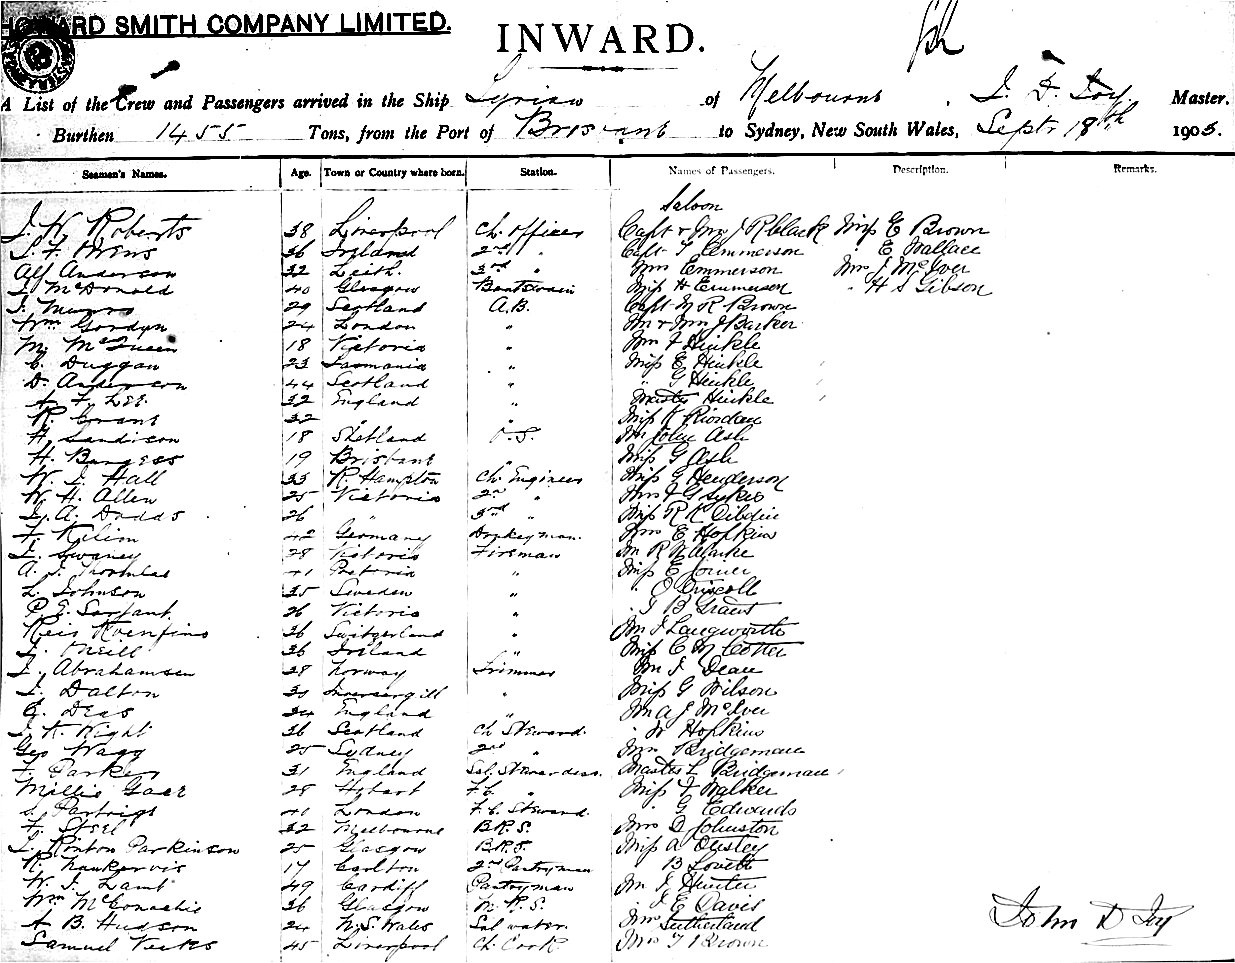 HOWARD SMITH COMPANY LIMITED.
INWARD.
A List of the Crew and Passengers arrived in the Ship Syrian of Melbourne, Master.
Burthen 1455 Tons, from the Port of Brisbane to Sydney, New South Wales, Septr 18th 1905.
Seamen's Names. Age. Town or Country where born. Station. Names of Passengers. Description. Remarks.
Saloon
Roberts 38 Liverpool Ch. Officer Capt & Mrs J R Black Miss E Brown
36 Ireland 2nd " Capt T Emmerson " E Wallace
Alf Anderson 32 Leith. 3rd " Mrs Emmerson Mrs J McIver
J McDonald 40 Glasgow Boatswain Miss H Emmerson " H S Gibson
J. Munro 29 Scotland A.B. Capt N R Brown
Wm Gordyn 24 London " Mr & Mrs J Barker
18 Victoria " Mrs J Hinkle
C. Duggan 23 Tasmania " Miss E Hinkle
D. Anderson 44 Scotland " " G Hinkle
A. F. Lee 32 England " Master Hinkle
R. Grant 32 " " Miss K Riordan
H. Sandison 18 Shetland O.S. Mr John Ash
H. Burgess 19 Brisbane " Miss G Ash
W. J. Hall 33 R. Hampton Ch. Engineer Miss G Henderson
W. H. Allen 25 Victoria 2nd " Mrs J G Sykes
A. Dodds 26 " 3rd " Miss R K Dibdin
42 Germany Donkeyman. Mrs E Hopkins
28 Victoria Fireman Mr R N Clarke
41 " Miss E Joiner
L. Johnson 35 Sweden " " O'Driscoll
P. E. Sargant 26 Victoria " " J B Grant
36 Switzerland " Mr J Langworth
J. Neill 36 Ireland " Miss C M Cotter
J. Abrahamsen 28 Norway Trimmer Mr J. Dean
J. Dalton 30 Invercargill " Miss G Wilson
24 England " Mr A J McIver
J. K. Wight 26 Scotland Ch Steward " W Hopkins
Geo Wagg 25 Sydney 2nd " Mrs Bridgeman
F. Parker 31 England Sal. Stewardess. Master L Bridgeman
28 Hobart F.C. " Miss J Walker
S. Partrige 41 London F.C. Steward. " G Edwards
F. Steel 32 Melbourne B.R.S. Mrs D Johnston
J. Ponton Parkinson 25 Glasgow B.R.S. Miss A Ousley
R. Nankervis 17 Carlton 2nd Pantryman " B Lovett
W. J. Lamb 49 Cardiff Pantryman Mr J Hunter
Wm McConachie 36 Glasgow M.R.S. " J E Davis
A. B. Hudson 24 N.S. Wales Sal waiter. Mrs Sutherland
Samuel 45 Liverpool Ch. Cook Mrs T Brown